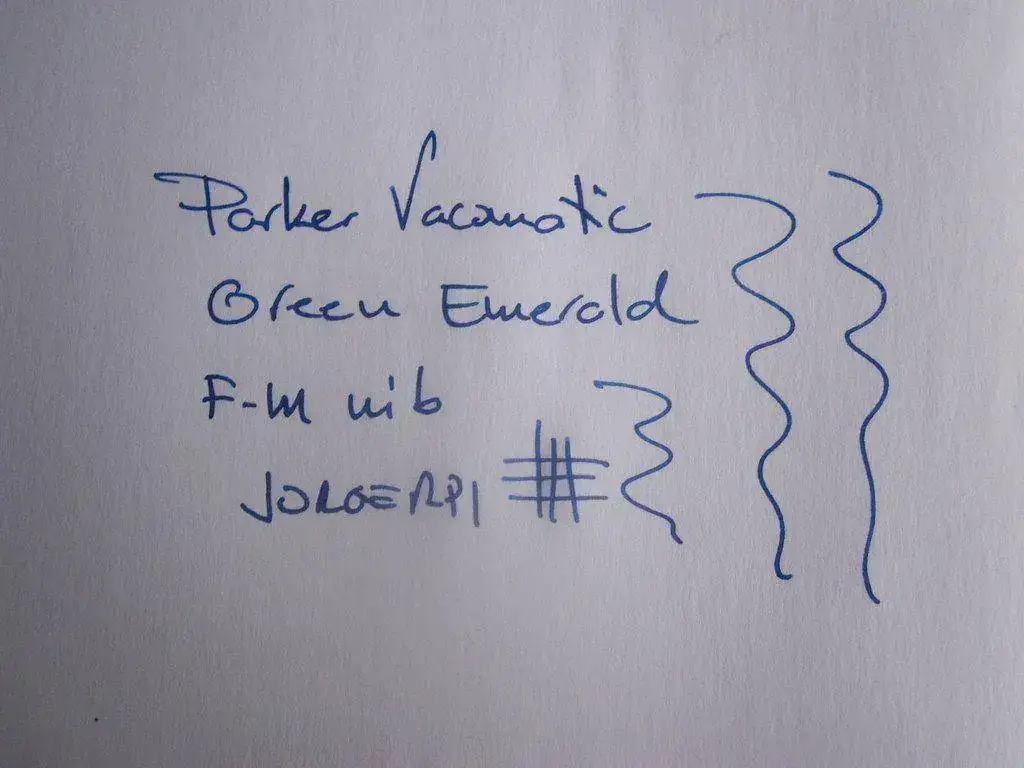 Parker Vacumatic
Green Emerald
F-M nib
JORGERPI